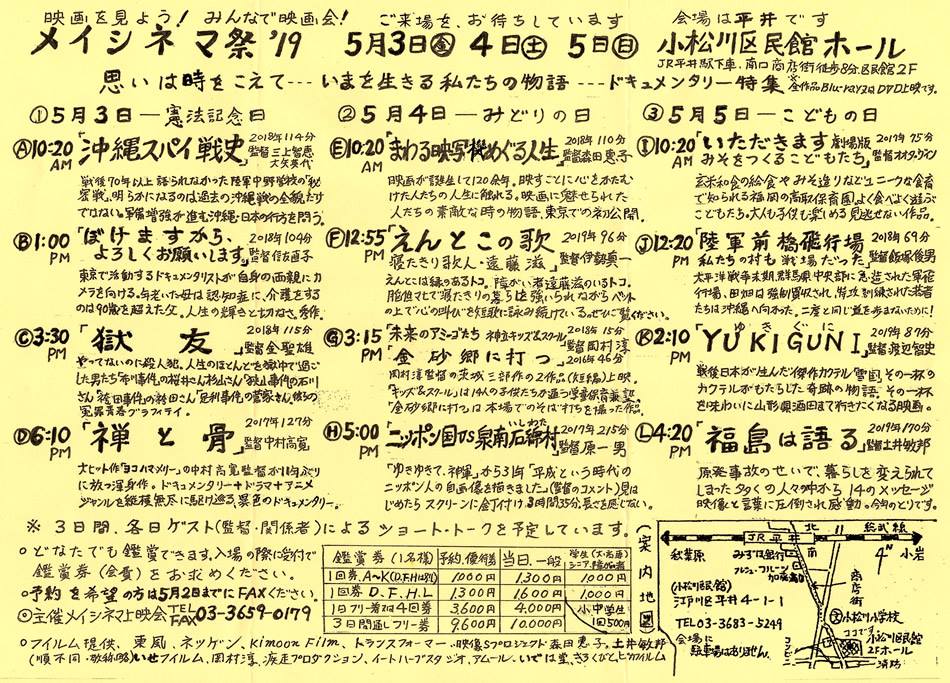 映画を見よう! みんなで映画会! ご来場を、お待ちしています 会場は平井です
メイシネマ祭'19 5月3日㊎ 4日㊏ 5日㊐ 小松川区民館ホール
JR平井駅下車、南口商店街徒歩8分、区民館2F
思いは時をこえて---いまを生きる私たちの物語---ドキュメンタリー特集 ※全作品Blu-ray又はDVD上映です。
①5月3日―憲法記念日
Ⓐ10:20 AM 「沖縄スパイ戦史」 2018年114分 監督 三上智恵 大矢英代
戦後70年以上語られなかった陸軍中野学校の「秘
密戦」、明らかになるのは過去の沖縄戦の全貌だけ
ではない。軍備増強が進む沖縄・日本の行方を問う。
Ⓑ1:00 PM 「ぼけますから、よろしくお願いします。」 2018年104分 監督 信友直子
東京で活動するドキュメンタリストが自身の両親にカ
メラを向ける。年老いた母は認知症に、介護をする
のは90歳を超えた父。人生の輝きと切なさ。秀作。
Ⓒ3:30 PM 「獄友」 2018年115分 監督 金聖雄
やってないのに殺人犯。人生のほとんどを獄中で過ご
した男たち「布川事件」の桜井さん杉山さん「狭山事件」の石川
さん「袴田事件」の袴田さん「足利事件」の菅家さん。彼らの
冤罪青春グラフィティ。
Ⓓ6:10 PM 「禅と骨」 2017年127分 監督 中村高寛
大ヒット作「ヨコハマメリー」の中村高寛監督が11年ぶり
に放つ渾身作。ドキュメンタリー+ドラマ+アニメ
ジャンルを縦横無尽に駆け巡る、異色のドキュメンタリー。
②5月4日―みどりの日
Ⓔ10:20 AM 「まわる映写機めぐる人生」 2018年110分 監督 森田恵子
映画が誕生して120余年。映すことに心をかたむ
けた人たちの人生に触れる。映画に魅せられた
人たちの素敵な時の物語。東京での初公開。
Ⓕ12:55 PM 「えんとこの歌 寝たきり歌人・遠藤滋」 2019年96分 監督 伊勢真一
えんとことは縁のあるトコ。障がい者遠藤滋のいるトコ。
脳性マヒで寝たきりの暮らしを強いられながらベット
の上で「心の叫び」を短歌に詠み続けている。ぜひご覧ください。
Ⓖ3:15 PM 「未来のアミーゴたち 神栖キッズ&スクール」 2018年15分 監督 岡村淳
「金砂郷に打つ」 2016年46分
岡村淳監督の茨城三部作の2作品(短編)上映。
「キッズ&スクール」は14人の子供たちが通う学童保育兼塾。
「金砂郷に打つ」は本場でのそば打ちを撮った作品。
Ⓗ5:00 PM 「ニッポン国VS泉南石綿村」 いしわた 2017年215分 監督 原一男
「ゆきゆきて、神軍」から31年「平成という時代の
ニッポン人の自画像を描きました。」(監督のコメント)見は
じめたらスクリーンに釘付け、3時間35分、長さを感じない。
③5月5日―こどもの日
Ⓘ10:20 AM 「いただきます 劇場版 みそをつくるこどもたち」 2019年75分 監督 オオタヴィン
玄米和食の給食やみそ造りなどユニークな食育
で知られる福岡の高取保育園。よく食べよく遊ぶ
こどもたち。大人も子供も楽しめる見逃せない作品。
Ⓙ12:20 PM 「陸軍前橋飛行場 私たちの村も戦場だった」 2018年69分 監督 飯塚俊男
太平洋戦争末期、群馬県中央部に急造された軍飛
行場、田畑は強制買収され、特攻訓練された若者
たちは沖縄へ向かった。二度と同じ道を歩まないために!
Ⓚ2:10 PM 「YUKIGUNI」 ゆきぐに 2019年87分 監督 渡辺智史
戦後日本が生んだ傑作カクテル「雪国」その一杯の
カクテルがもたらした奇跡の物語。その一杯
を味わいに山形県酒田まで行きたくなる映画。
Ⓛ4:20 PM 「福島は語る」 2019年170分 監督 土井敏邦
原発事故のせいで、暮らしを変えられて
しまった多くの人々の中から14のメッセージ
映像と言葉に圧倒され感動。今年のとりです。
※3日間、各日ゲスト(監督・関係者)によるショート・トークを予定しています。
○どなたでも鑑賞できます。入場の際に受付で
鑑賞券(会費)をお求めください。
○予約を希望の方は5月2日までにFAXください。
◎主催メイシネマ上映会 TEL FAX 03-3659-0179
鑑賞券(1名様) 予約、優待 当日、一般 学生(大・高・専)シニア、障がい者
1回券、A~K(D.F.Hは別) 1000円 1300円 1000円
1回券 D.F.H.L 1300円 1600円 1000円
1日フリー券又は4回券 3,600円 4,000円 小中学生
3日間通しフリー券 9,600円 10,000円 1回500円
○フイルム提供、東風、ネツゲン、Kimoon Film、トランスフォーマー、映像&プロジェクト森田恵子、土井敏邦
(順不同・敬称略)いせフイルム、岡村淳、疾走プロダクション、イートハーブスタジオ、アムール、いでは堂、きろくびと、ピカフイルム
(案内地図)
北 総武線
JR平井
秋葉原 南 4N 小岩
みずほ銀行
(小松川区民館)
江戸川区平井4-1-1
TEL03-3683-5249
会場に
駐車場はありません。
商店街
小松川小学校
ココです。
小松川区民館
2Fホール
コンビニ
消防